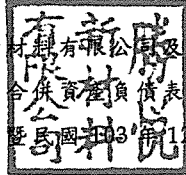 材料有限公司及
合併資產負債表
暨民國103年1
勝悅
新材料
有限公司